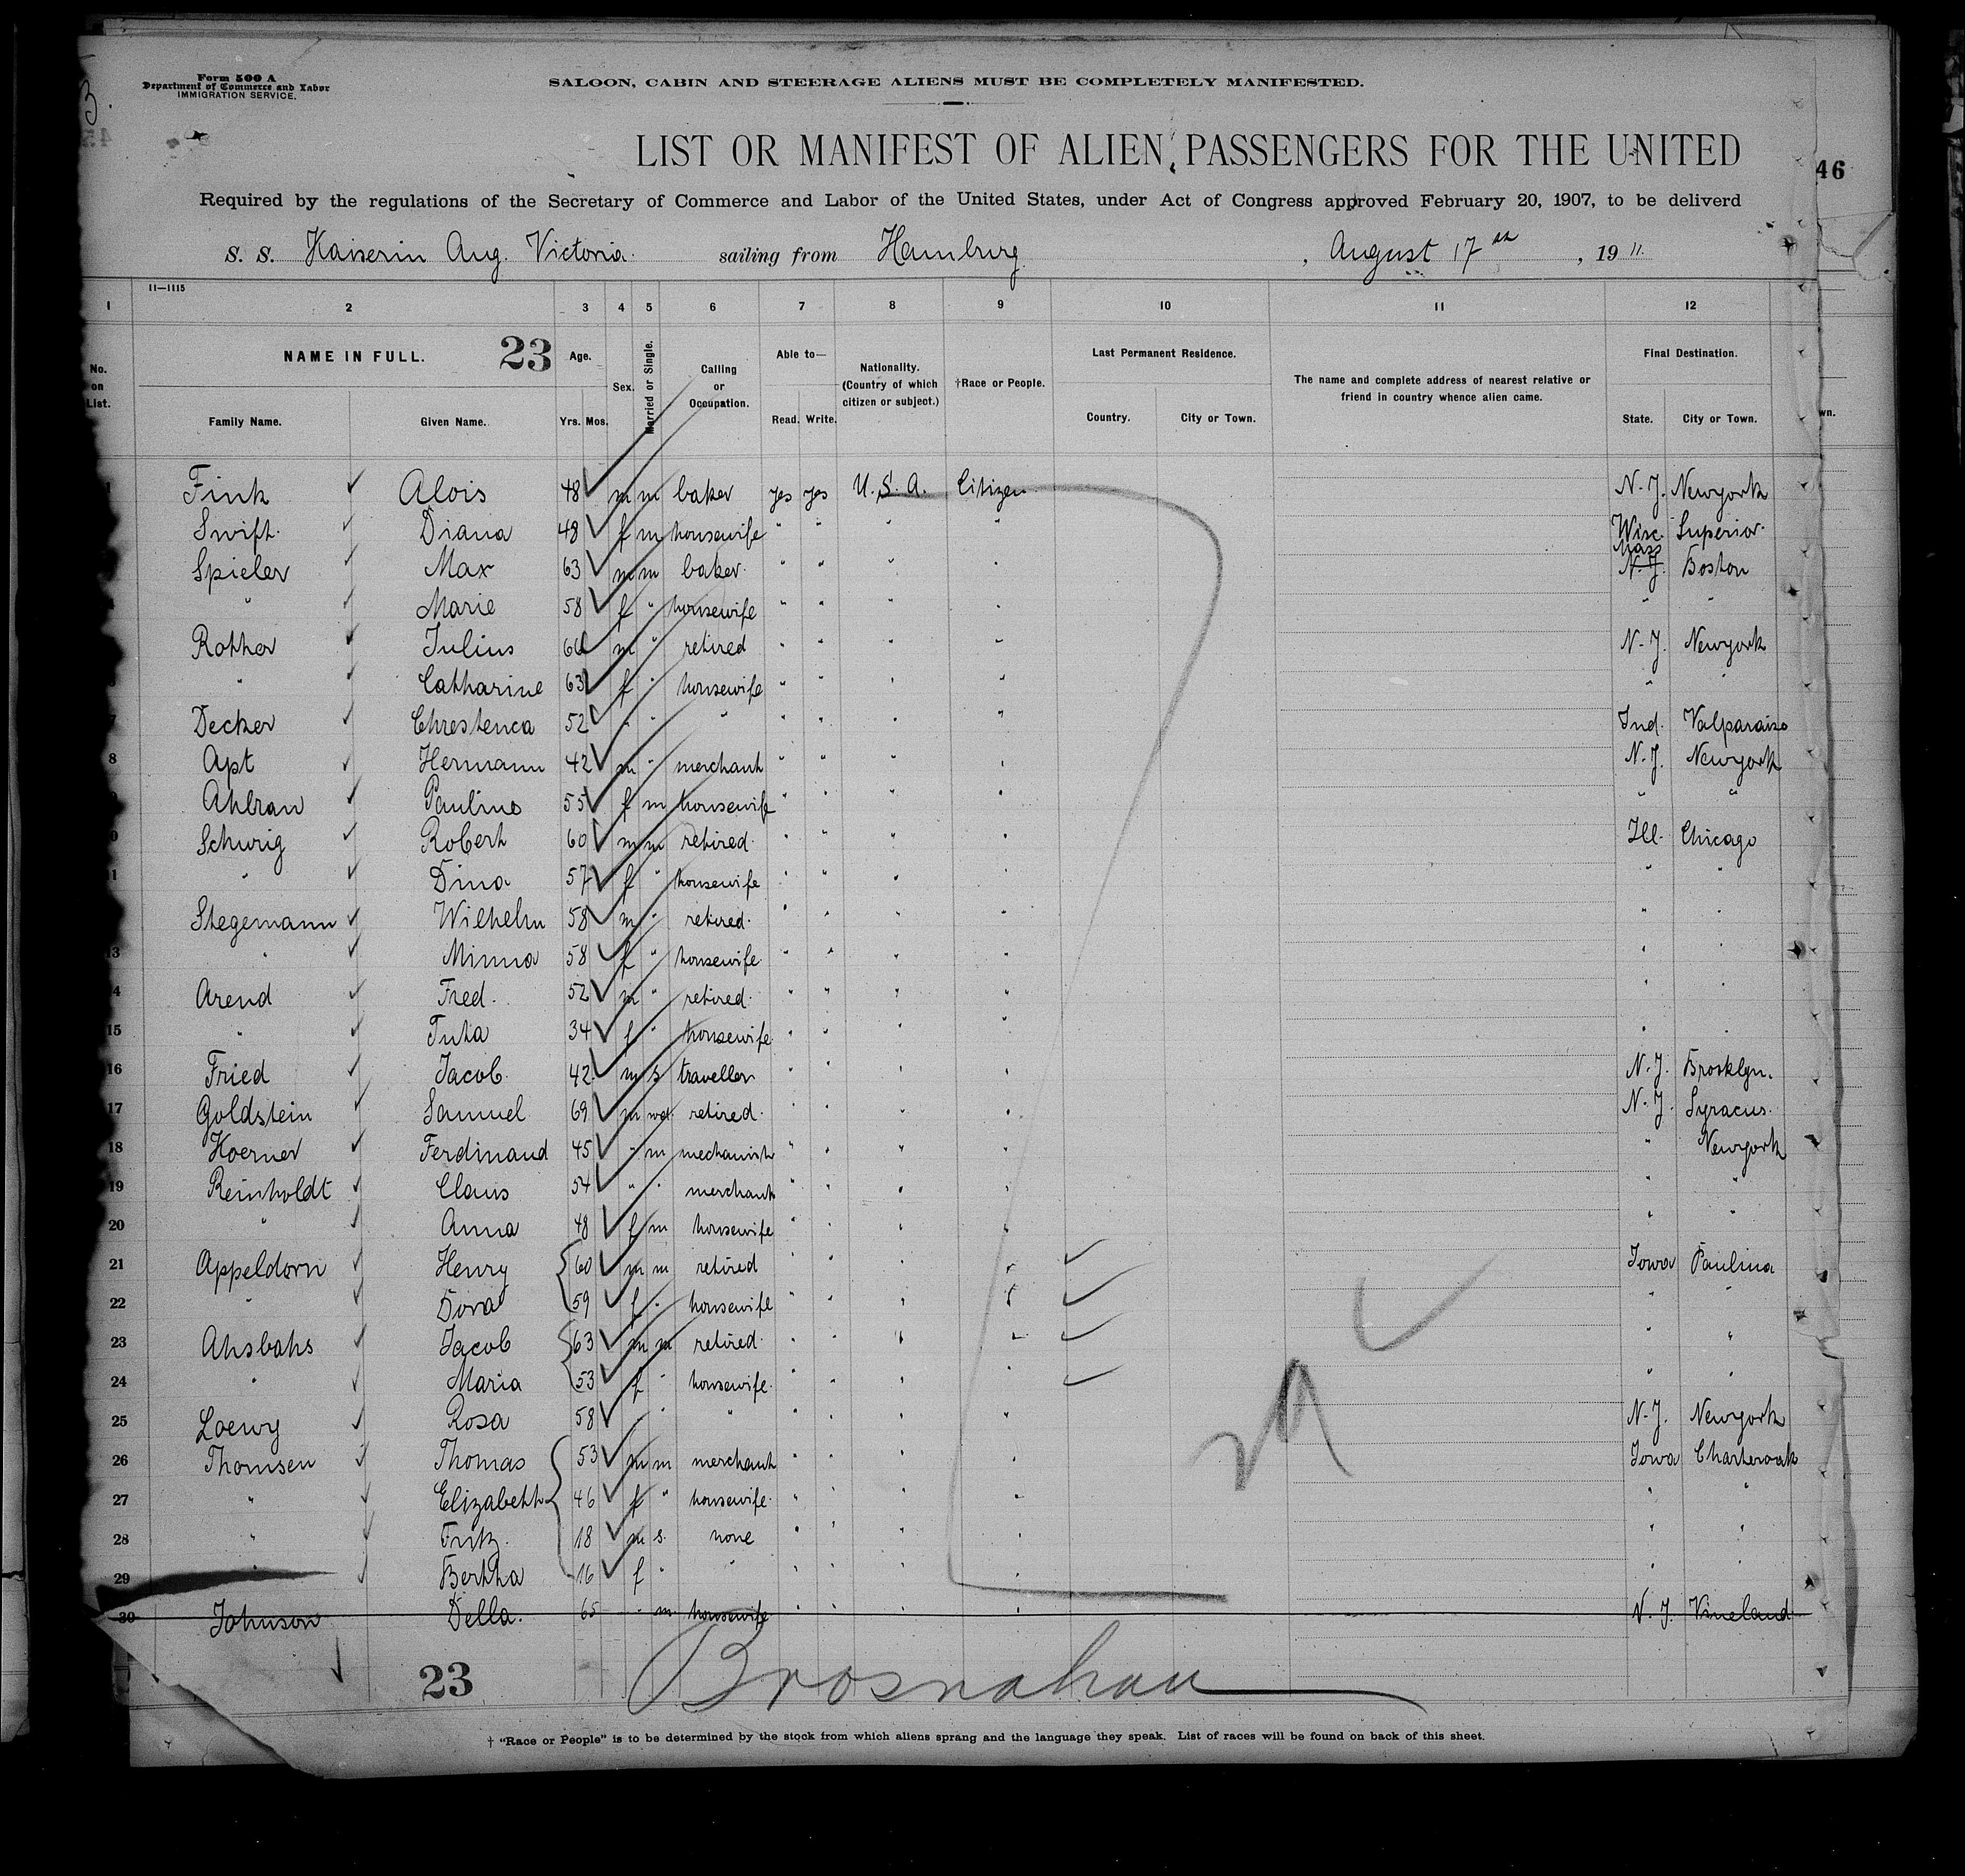 Form 500 A
Department of Commerce and Labor
IMMIGRATION SERVICE.
SALOON, CABIN AND STEERAGE ALIENS MUST BE COMPLETELY MANIFESTED.
LIST OR MANIFEST OF ALIEN PASSENGERS FOR THE UNITED
46
Required by the regulations of the Secretary of Commerce and Labor of the United States, under Act of Congress approved February 20, 1907, to be deliverd
S. S. Kaiserin Aug. Victoria. sailing from Hamburg, August 17th, 1911.
11—1115
1 2 3 4 5 6 7 8 9 10 11 12
No. on List. NAME IN FULL. 23 Age. Sex. Married or Single. Calling or Occupation. Able to— Nationality. (Country of which citizen or subject.) †Race or People. Last Permanent Residence. The name and complete address of nearest relative or friend in country whence alien came. Final Destination.
Family Name. Given Name. Yrs. Mos. Read. Write. Country. City or Town. State. City or Town.
Fink Alois 48 m m baker yes yes U.S.A. Citizen N.J. Newyork
Swift. Diana 48 f m housewife " " " " Wisc. Superior
Spieler Max 63 m m baker " " " " Mass N.J. Boston
" Marie 58 f " housewife " " " " " "
Rother Julius m " retired " " " " N.J. Newyork
" Catharine 63 f " housewife " " " " " "
7 Decker Chrestenca 52 " " " " " " " Ind. Valparaiso
8 Apt Hermann 42 m " merchant " " " " N.J. Newyork
Ahlran Pauline 55 f m housewife " " " " " "
Schurig Robert 60 m m retired " " " " Ill. Chicago
" Dina 57 f " housewife " " " " " "
Stegemann Wilhelm 58 m " retired " " " " " "
13 " Minna 58 f " housewife " " " " " "
Arend Fred. 52 m " retired " " " " " "
15 " Juta 34 f " housewife " " " " " "
16 Fried Jacob 42 m s traveller " " " " N.J. Brooklyn.
17 Goldstein Samuel 69 m wd. retired " " " " N.J. Syracus.
18 Hoerner Ferdinand 45 " m mechanist " " " " " Newyork
19 Reinholdt Claus 54 " " merchant " " " " " "
20 " Anna 48 f m housewife " " " " " "
21 Appeldorn Henry 60 m m retired " " " " Iowa Paulina
22 " Dora 59 f " housewife " " " " " "
23 Ahsbahs Jacob 63 m m retired " " " " " "
24 " Maria 53 f " housewife " " " " " "
25 Loewy Rosa 58 " " " " " " " N.J. Newyork
26 Thomsen Thomas 53 m m merchant " " " " Iowa Charteroak
27 " Elizabeth 46 f " housewife " " " " " "
28 " Fritz 18 m s. none " " " " " "
29 " Bertha 16 f " " " " " " " "
30 Johnson Della. 65 " m housewife " " " " N.J. Vineland
23 Brosnahan
† "Race or People" is to be determined by the stock from which aliens sprang and the language they speak. List of races will be found on back of this sheet.